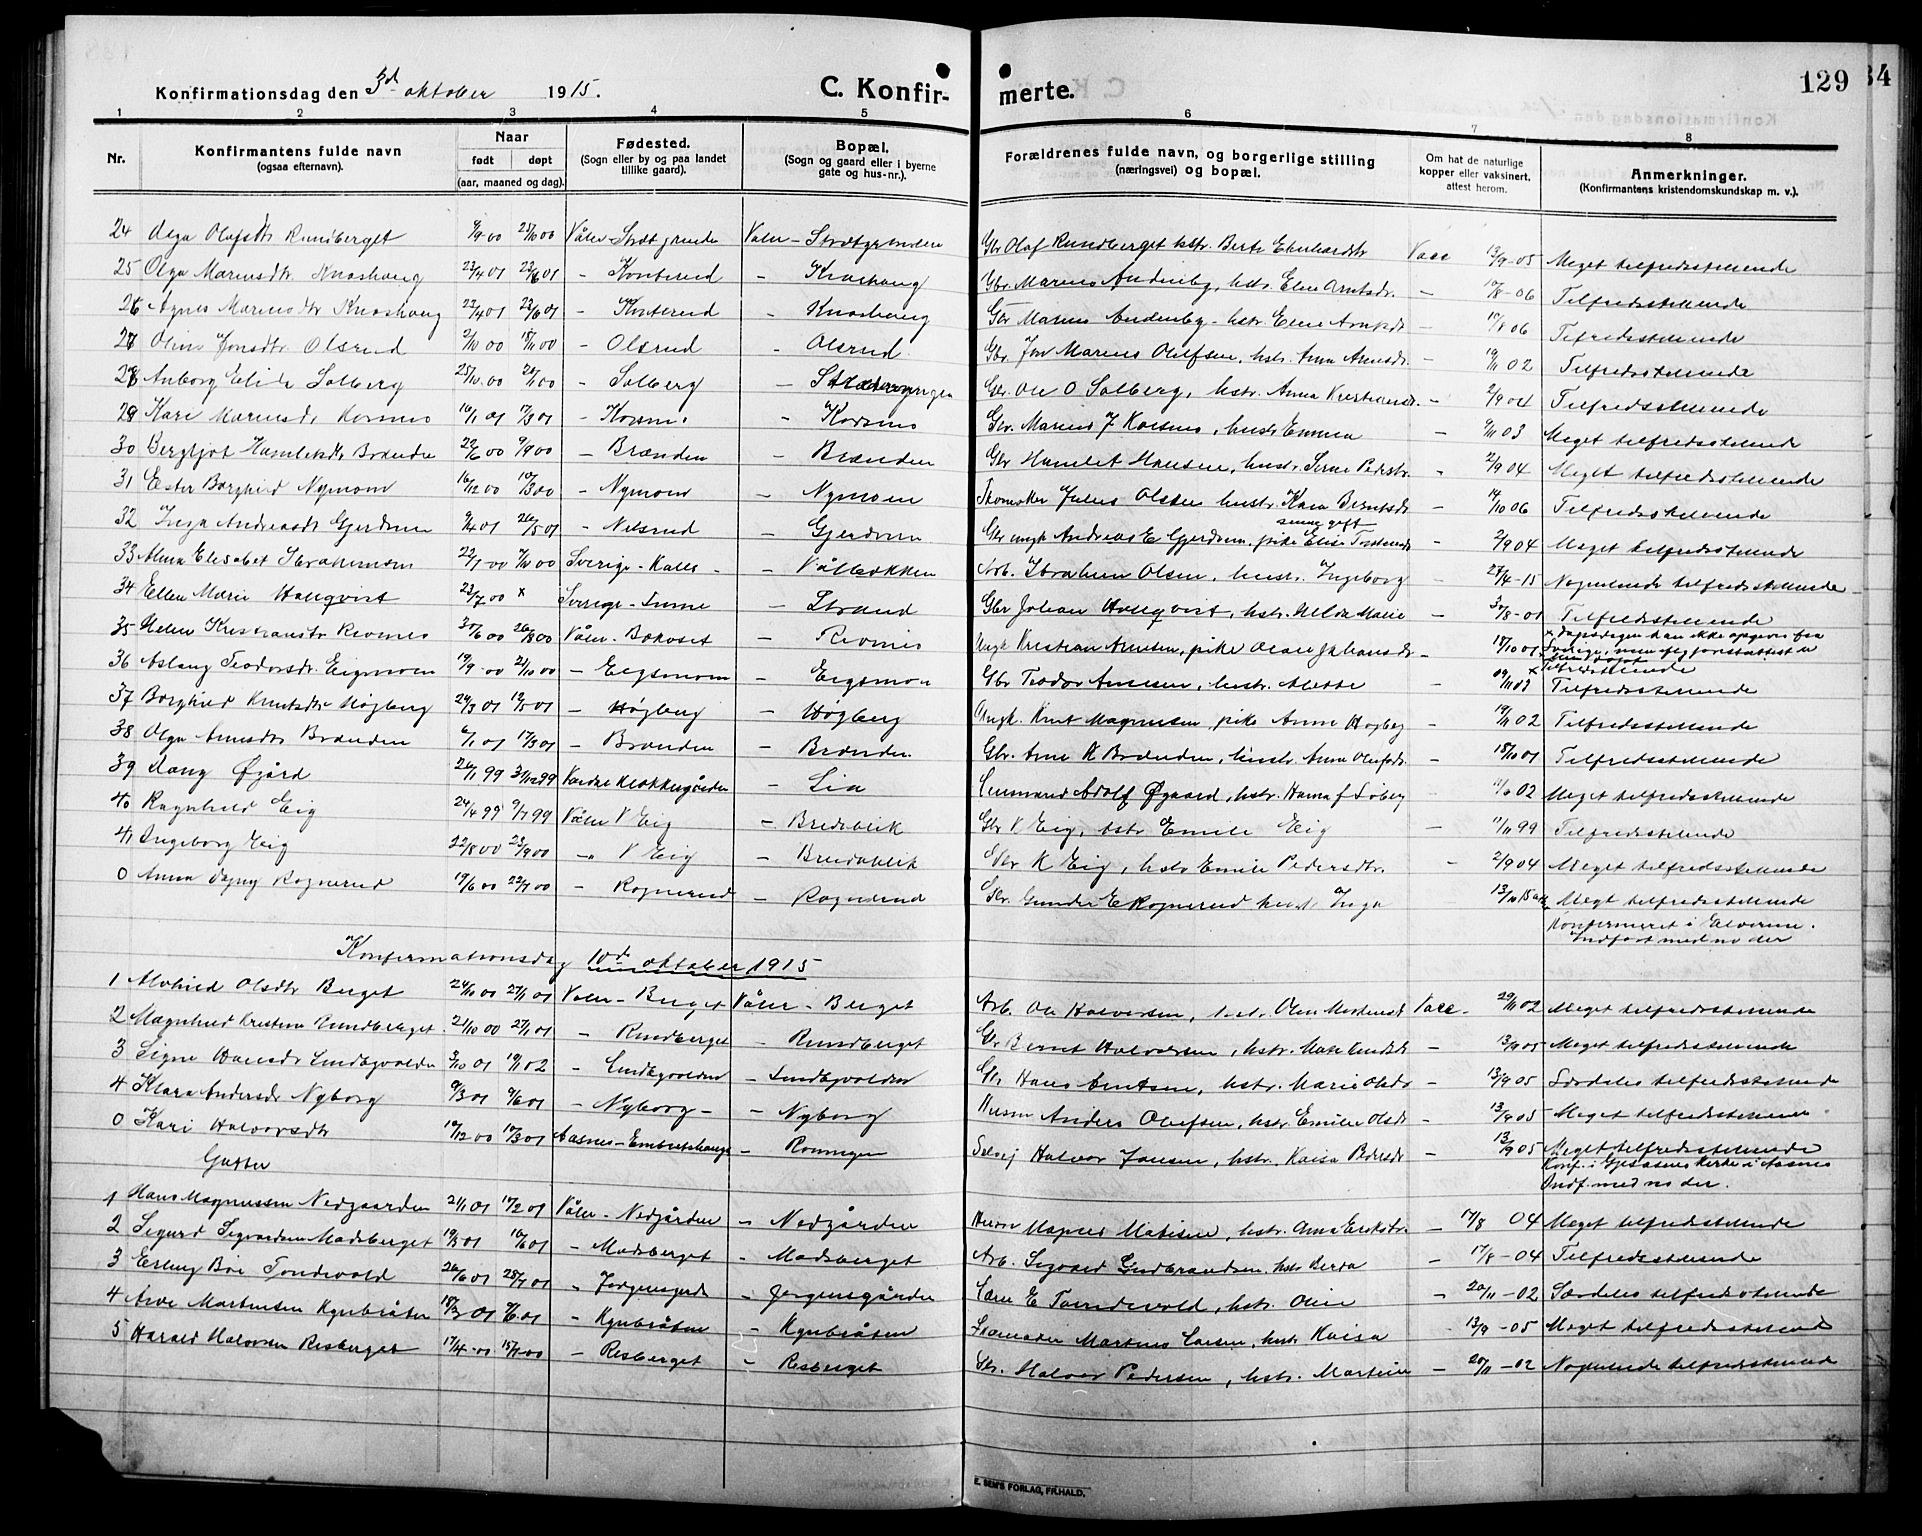 Konfirmationsdag den 3d oktober 1915. C. Konfirmerte. 129
34
1 2 3 4 5 6 7 8
Nr. Konfirmantens fulde navn (ogsaa efternavn). Naar født døpt (aar, maaned og dag). Fødested. (Sogn eller by og paa landet tillike gaard). Bopæl. (Sogn og gaard eller i byerne gate og hus-nr.). Forældrenes fulde navn, og borgerlige stilling (næringsvei) og bopæl. Om hat de naturlige kopper eller vaksinert, attest herom. Anmerkninger. (Konfirmantens kristendomskundskap m. v.).
24 Olga Olafsdtr Rundberget 9/9 00 25/10 00 Våler - Valer - Gbr Olaf Rundberget hstr. Berte Vacc 13/9-05 Meget tilfredsstillende
25 Olga Mariusdtr. Knashaug 23/4 01 23/6 01 - Konterud - Knashaug Gbr. Marius Andenby, hstr. Eline Arntsdr. - 17/8-06 Tilfredsstillende
26 Agnes Mariusdtr Knashaug 23/4 01 23/6 01 - Konterud - Knashaug Gbr Marius Andenby - hstr. Eline Arntsdr - 17/8 06 Tilfredsstillende
27 Oline Jonsdtr Olsrud 2/10 00 18/11 00 - Olsrud - Olsrud Gbr. Jon Marius Olufsen, hstr. Anna Arnesdr. - 19/11 02 Tilfredsstillende
28 Anborg Elide Solberg 25/10 00 26/11 00 - Solberg - Gbr. Ole O Solberg, hstr. Anna - 2/9 04 Tilfredsstillende
29 Kari Mariusdr Kosmo 16/1 01 17/3 01 - Kosmo - Kosmo Gbr. Marius J Kosmo, hustr Emma - 9/11 03 Meget tilfredsstillende
30 Bergljot Hamletsdtr Brænden 22/6 00 9/9 00 - Brænden - Brænden Gbr Hamlet Hansen, hustr. Serine Pedersdtr. - 2/9 04 Meget tilfredsstillende
31 Ester Borghild Nymoen 16/12 00 - Nymoen - Nymoen Skomaker Julius Olsen hustr. Kaia Berntsdr - 14/10 06 Tilfredsstillende
32 Inga Andreasdtr Gjerdmoen 9/4 01 26/5 01 - Nilsrud - Gjerdmoen Gbr ungk Andreas E Gjerdmoen, pike Elise - 2/9 04 Meget tilfredsstillende
33 Alma Elisabet Ibrahimsen 22/7 00 7/10 00 Sverige - - Vålbækken Arb. Ibrahim Olsen, hustr. Ingeborg - 27/4-15 Nogenlunde tilfredsstillende
34 Ellen Marie Hallqvist 23/7 00 x Sverige - - Strand Gbr Johan Hallqvist, hstr. Hilda Marie - 30/8-01 Tilfredsstillende
35 Helen Kristiansdtr Revmes 30/6 00 26/8 00 Våler - - Ungk Kristian Arnesen, pike Oline Johansdr - 18/10 01 x dåpsdagen kan ikke opgives fra Sverige, men
36 Aslaug Teodorsdr. Eigsmoen 19/9-00 21/10 00 - Eigsmoen - Eigsmoen Gbr Teodor Arnesen, hustr. Alette - Tilfredsstillende
37 Borghild Knutsdtr Høgberg 24/3 01 12/5 01 - Høgberg - Høgberg Ungk. Knut Magnussen pike Anna Høgberg - 19/11 02 Tilfredsstillende
38 Olga Arnesdtr Brænden 6/1 01 17/3 01 - Brænden - Brænden Gbr. Arne K Brænden, hustr. Anna Olufsdr. - 18/10 01 Tilfredsstillende
39 Øgård 26/11 99 31/12 99 Klokkergården - Lia Lensmand Adolf Øgaard, hstr. Hanna f Søberg 11/6 02 Meget tilfredsstillende
40 Ragnhild Eig 24/4 99 9/7 99 Våler V Eig - Bredablik Gbr K Eig, hstr Emilie Eig - 11/11 99 Tilfredsstillende
41 Ingeborg Eig 22/8 00 23/9 00 - V Eig - Bredablik Gbr K Eig, hstr Emilie Pedersdtr. - 2/9 04 Meget tilfredsstillende
0 Anna Dagny Rognerud 19/6 00 22/7 00 - Rognerud - Rognerud Gbr. Gunder E Rognerud hust Inga Meget tilfredsstillende
Konfirmeret i Elverum.
Indført med no der
Konfirmationsdag 10d oktober 1915
1 Alvhild Olsdtr Berget 24/10 00 27/1 01 Våler - Berget Våler - Berget Arb. Ole Halvorsen, hstr. Olea Vacc - 29/11 02 Meget tilfredsstillende
2 Magnhild Kristine Rundberget 21/10 00 27/1 01 - Rundberget - Rundberget Gbr Bernt Halvorsen, hstr. - 13/9 05 Meget tilfredsstillende
3 Signe Hansdr Lindegvolden 3/10 01 19/1 02 - Lindegvolden - Lindegvolden Gbr Hans Arntsen, hstr. Marie Olsdr - 13/9 05 Særdeles tilfredsstillende
4 Klara Andersdr Nyborg 9/3 01 9/6 01 - Nyborg - - Nyborg Husm Anders Olufsen, hstr. Emilie Olsdr - 13/9 05 Meget tilfredsstillende
0 Kari Halvorsdtr 17/12 00 17/3 01 Aasnes - Embretshaug - Ronningen Selvej Halvor Jansen, hstr. Kaisa Pedersdr - 13/9 05 Meget tilfredsstillende
Konf. i Gjesåsens kirke i Aasnes
Indf. med no der.
Gutter
1 Hans Magnussen Nedgaarden 21/1 01 17/2 01 Våler - Nedgården - Nedgården Husm Magnus Matisen, hstr. Anna Eriksdr. - 17/8 04 Meget tilfredsstillende
2 Sigurd Sigvardsen Madsberget 19/3 01 16/5 01 - Madsberget - Madsberget Arb. Sigvard Gudbrandsen, hstr Berta - 17/8-04 Tilfredsstillende
3 Erling Bøe Tondevold 26/6 01 28/7 01 - Jørgensgårde - Jørgensgården Lærer E Tondevold, hstr. Olise - 20/11-02 Særdeles tilfredsstillende
4 Arve Martinsen Kynbråten 18/3 01 - Kynbråten - Kynbråten Skomaker Martinus Larsen, hust Kaisa - 13/9-05 Meget tilfredsstillende
5 Harald Halvorsen Risberget 17/4-00 15/7-00 - Risberget - Risberget Gbr. Halvor Pedersen, hstr. Martine - 20/11-02 Nogenlunde tilfredsstillende
E. SEM'S FORLAG, FR.HALD.